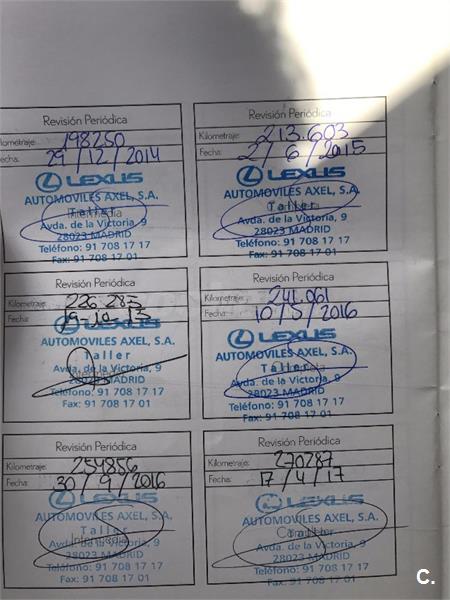 Revisión Periódica
Kilometraje: 198250
Fecha: 29/12/2014
LEXUS
AUTOMOVILES AXEL, S.A.
Taller
Intermedia
Avda. de la Victoria, 9
28023 MADRID
Teléfono: 91 708 17 17
Fax: 91 708 17 01
Revisión Periódica
Kilometraje: 213.603
Fecha: 2/6/2015
LEXUS
AUTOMOVILES AXEL, S.A.
Taller
Avda. de la Victoria, 9
28023 MADRID
Teléfono: 91 708 17 17
Fax: 91 708 17 01
Revisión Periódica
Kilometraje: 226.283
Fecha: 19-10-15
LEXUS
AUTOMOVILES AXEL, S.A.
Taller
Intermedia
Avda. de la Victoria, 9
28023 MADRID
Teléfono: 91 708 17 17
Fax: 91 708 17 01
Revisión Periódica
Kilometraje: 241.061
Fecha: 10/5/2016
LEXUS
AUTOMOVILES AXEL, S.A.
Taller
Avda. de la Victoria, 9
28023 MADRID
Teléfono: 91 708 17 17
Fax: 91 708 17 01
Revisión Periódica
Kilometraje: 254856
Fecha: 30/9/2016
LEXUS
AUTOMOVILES AXEL, S.A.
Taller
Intermedia
Avda. de la Victoria, 9
28023 MADRID
Teléfono: 91 708 17 17
Fax: 91 708 17 01
Revisión Periódica
Kilometraje: 270287
Fecha: 17/4/17
LEXUS
AUTOMOVILES AXEL, S.A.
Taller
Avda. de la Victoria, 9
28023 MADRID
Teléfono: 91 708 17 17
Fax: 91 708 17 01
C.